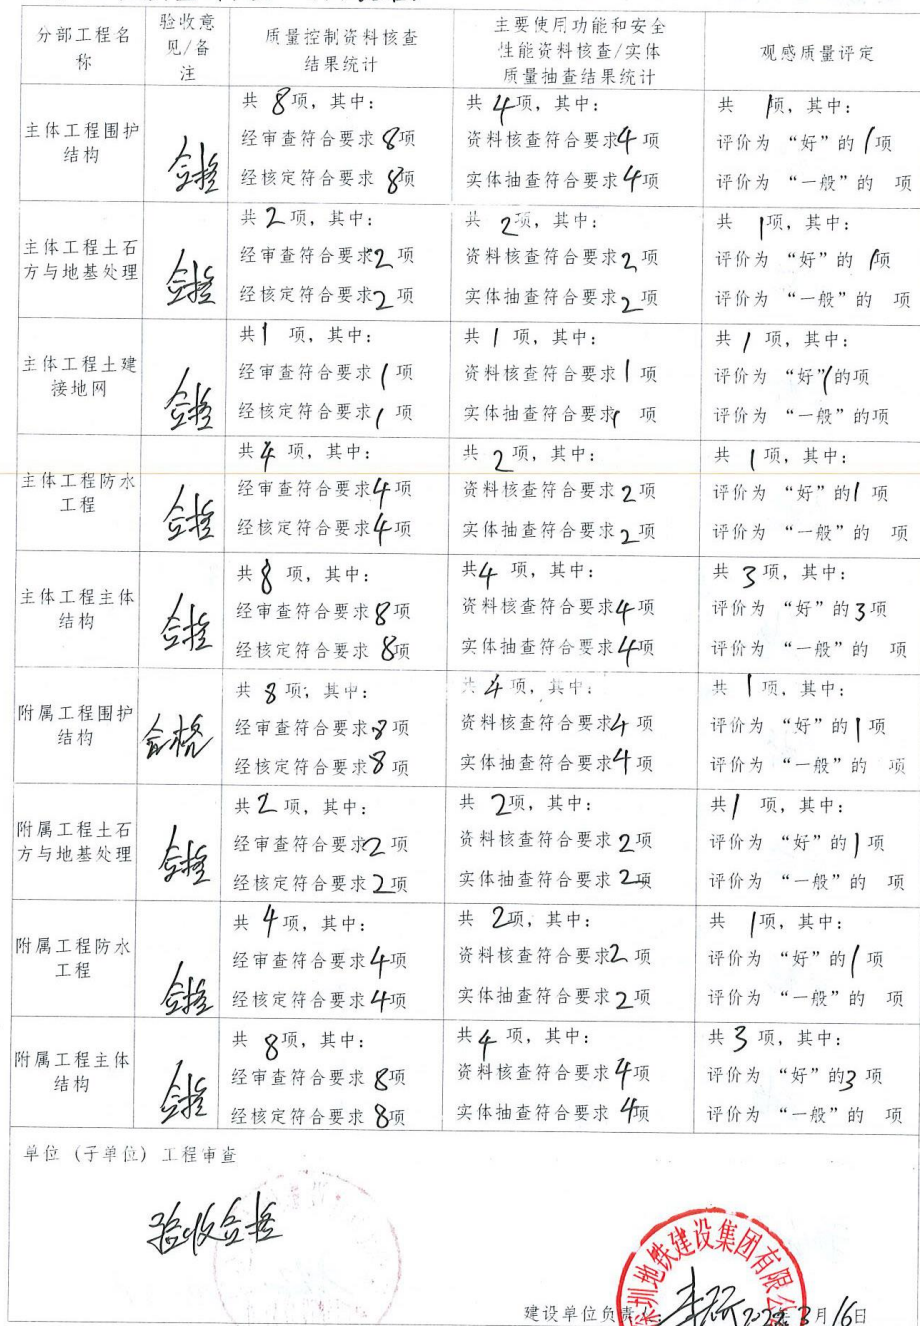 分部工程名称
验收意见/备注
质量控制资料核查结果统计
主要使用功能和安全性能资料核查/实体质量抽查结果统计
观感质量评定
主体工程围护结构
合格
共 8项，其中：
经审查符合要求 8项
经核定符合要求 8项
共 4项，其中：
资料核查符合要求4 项
实体抽查符合要求4项
共 1项，其中：
评价为 “好”的 1项
评价为 “一般”的 项
主体工程土石方与地基处理
合格
共2项，其中：
经审查符合要求2项
经核定符合要求2 项
共 2项，其中：
资料核查符合要求2 项
实体抽查符合要求2 项
共 1项，其中：
评价为 “好”的 1项
评价为 “一般”的 项
主体工程土建接地网
合格
共1 项，其中：
经审查符合要求1 项
经核定符合要求1 项
共1 项，其中：
资料核查符合要求1 项
实体抽查符合要求1 项
共 1 项，其中：
评价为 “好”1的项
评价为 “一般”的项
主体工程防水工程
合格
共4 项，其中：
经审查符合要求4项
经核定符合要求4项
共 2项，其中：
资料核查符合要求2项
实体抽查符合要求2项
共 1项，其中：
评价为 “好”的1 项
评价为 “一般”的 项
主体工程主体结构
合格
共8 项，其中：
经审查符合要求8项
经核定符合要求 8项
共4 项，其中：
资料核查符合要求4项
实体抽查符合要求4项
共 3项，其中：
评价为 “好”的3项
评价为 “一般”的 项
附属工程围护结构
合格
共 8项，其中：
经审查符合要求8项
经核定符合要求8 项
共 4项，其中：
资料核查符合要求4 项
实体抽查符合要求4项
共 1项，其中：
评价为 “好”的1项
评价为 “一般”的 项
附属工程土石方与地基处理
合格
共2 项，其中：
经审查符合要求2 项
经核定符合要求2项
共 2项，其中：
资料核查符合要求2项
实体抽查符合要求2项
共1 项，其中：
评价为 “好”的1项
评价为 “一般”的 项
附属工程防水工程
合格
共 4项，其中：
经审查符合要求4项
经核定符合要求4项
共 2项，其中：
资料核查符合要求2 项
实体抽查符合要求2项
共 1项，其中：
评价为 “好”的1 项
评价为 “一般”的 项
附属工程主体结构
合格
共 8项，其中：
经审查符合要求 8项
经核定符合要求8项
共4 项，其中：
资料核查符合要求 4项
实体抽查符合要求 4项
共3 项，其中：
评价为 “好”的3 项
评价为 “一般”的 项
单位（子单位）工程审查
验收合格
深圳地铁建设集团有限公
建设单位负责人： 年3月16日